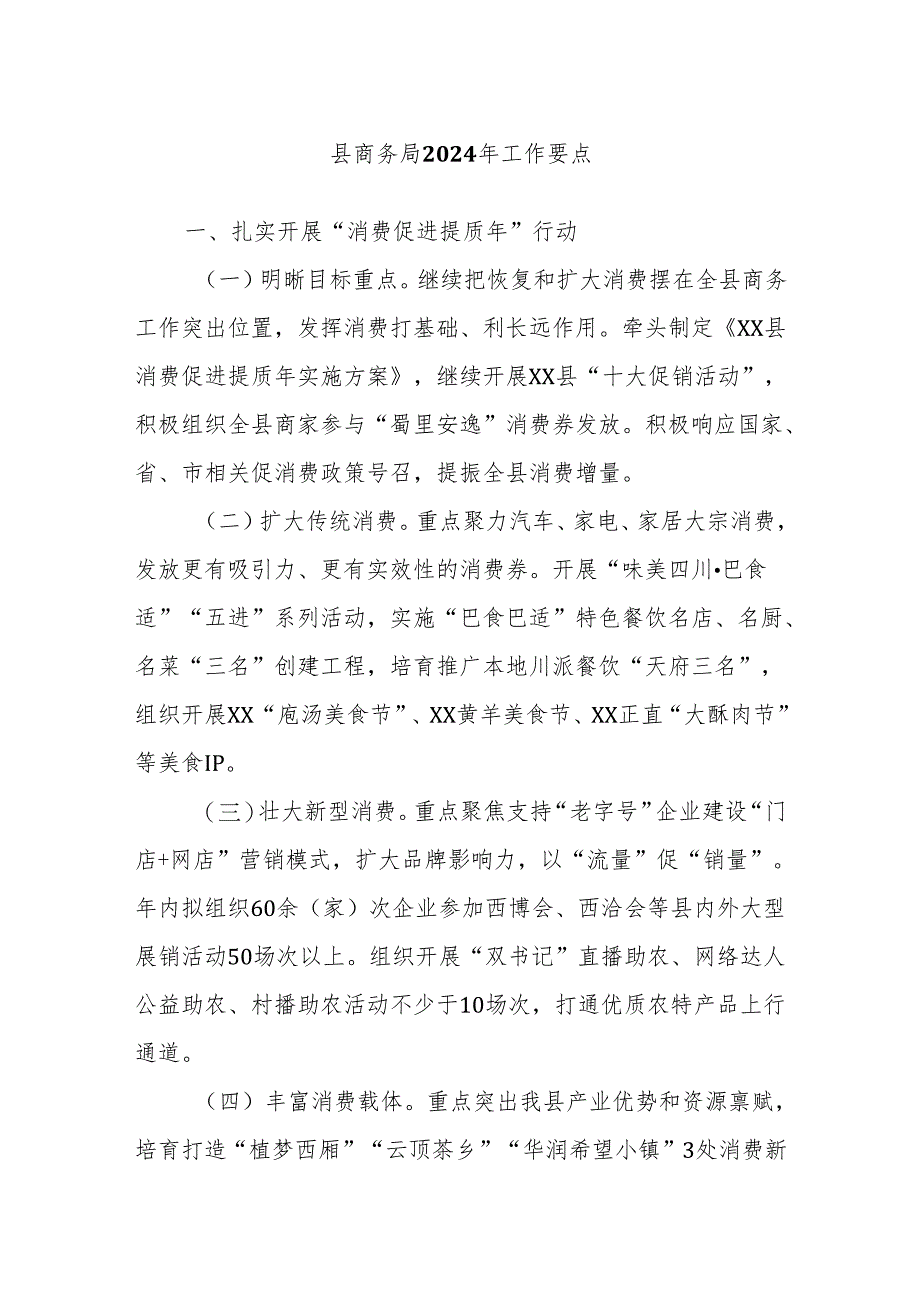 县商务局2024年工作要点
一、扎实开展“消费促进提质年”行动
（一）明晰目标重点。继续把恢复和扩大消费摆在全县商务
工作突出位置，发挥消费打基础、利长远作用。牵头制定《XX县
消费促进提质年实施方案》，继续开展XX县“十大促销活动”，
积极组织全县商家参与“蜀里安逸”消费券发放。积极响应国家、
省、市相关促消费政策号召，提振全县消费增量。
（二）扩大传统消费。重点聚力汽车、家电、家居大宗消费，
发放更有吸引力、更有实效性的消费券。开展“味美四川•巴食
适”“五进”系列活动，实施“巴食巴适”特色餐饮名店、名厨、
名菜“三名”创建工程，培育推广本地川派餐饮“天府三名”，
组织开展XX“庖汤美食节”、XX黄羊美食节、XX正直“大酥肉节”
等美食IP。
（三)壮大新型消费。重点聚焦支持“老字号”企业建设“门
店+网店”营销模式，扩大品牌影响力，以“流量”促“销量”。
年内拟组织60余（家）次企业参加西博会、西洽会等县内外大型
展销活动50场次以上。组织开展“双书记”直播助农、网络达人
公益助农、村播助农活动不少于10场次，打通优质农特产品上行
通道。
（四）丰富消费载体。重点突出我县产业优势和资源禀赋，
培育打造“植梦西厢”“云顶茶乡”“华润希望小镇”3处消费新